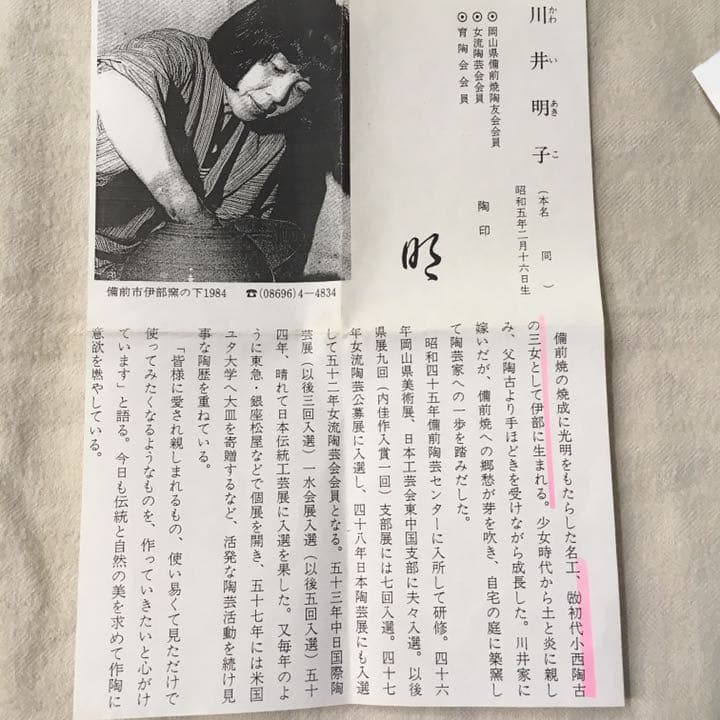 川井明子
かわいあきこ
(本名 同)
昭和五年二月十六日生
◉岡山県備前焼陶友会会員
◉女流陶芸会会員
◉育陶会会員
陶印
明
備前市伊部窯の下1984 ☎(08696)4-4834
備前焼の焼成に光明をもたらした名工、㊙初代小西陶古
の三女として伊部に生まれる。少女時代から土と炎に親し
み、父陶古より手ほどきを受けながら成長した。川井家に
嫁いだが、備前焼への郷愁が芽を吹き、自宅の庭に築窯し
て陶芸家への一歩を踏みだした。
昭和四十五年備前陶芸センターに入所して研修。四十六
年岡山県美術展、日本工芸会東中国支部に夫々入選。以後
県展九回(内佳作入賞一回)支部展には七回入選。四十七
年女流陶芸公募展に入選し、四十八年日本陶芸展にも入選
して五十二年女流陶芸会会員となる。五十三年中日国際陶
芸展(以後三回入選)一水会展入選(以後五回入選)五十
四年、晴れて日本伝統工芸展に入選を果した。又毎年のよ
うに東急・銀座松屋などで個展を開き、五十七年には米国
ユタ大学へ大皿を寄贈するなど、活発な陶芸活動を続け見
事な陶歴を重ねている。
「皆様に愛され親しまれるもの、使い易くて見ただけで
使ってみたくなるようなものを、作っていきたいと心がけ
ています」と語る。今日も伝統と自然の美を求めて作陶に
意欲を燃やしている。